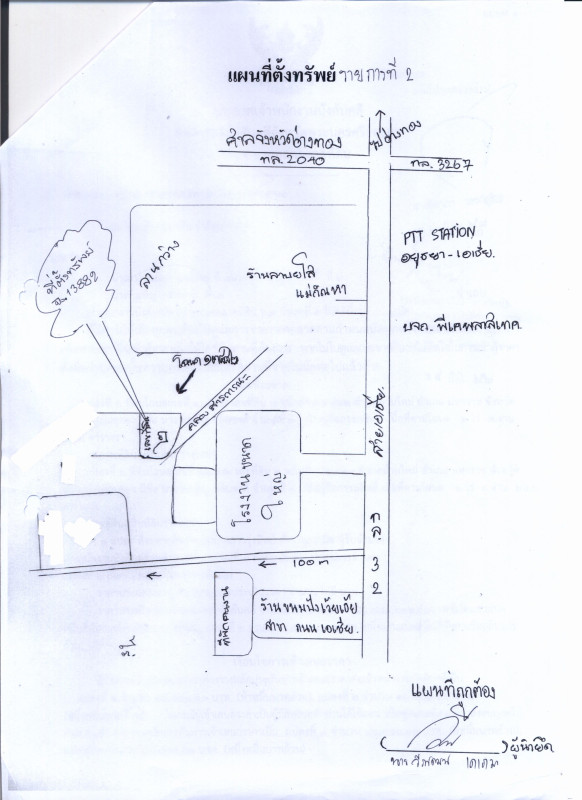 แผนที่ตั้งทรัพย์ รายการที่ 2
ศาลจังหวัดอ่างทอง
ไปอ่างทอง
ทล. 2040
ทล. 3267
ที่ตั้งทรัพย์
ฉ. 13882
ลานกว้าง
ร้านลาบยโส
แม่กัณหา
PTT STATION
อยุธยา - เอเชีย.
บจก. พีเคพลาสเทค.
คลองสาธารณะ
โรงงานขนาด
ใหญ่
สายเอเชีย.
ทล.
3
2
100 m
ที่พักคนงาน
ร้านขนมปังเวียเอีย
สาขา ถนน เอเชีย.
แผนที่ถูกต้อง
( ) ผู้นำยึด
นาย